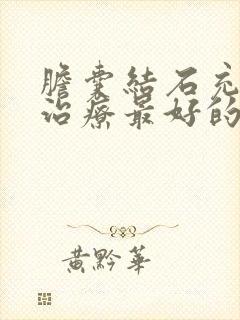 膽囊結石充
治療最好的
黃黔華